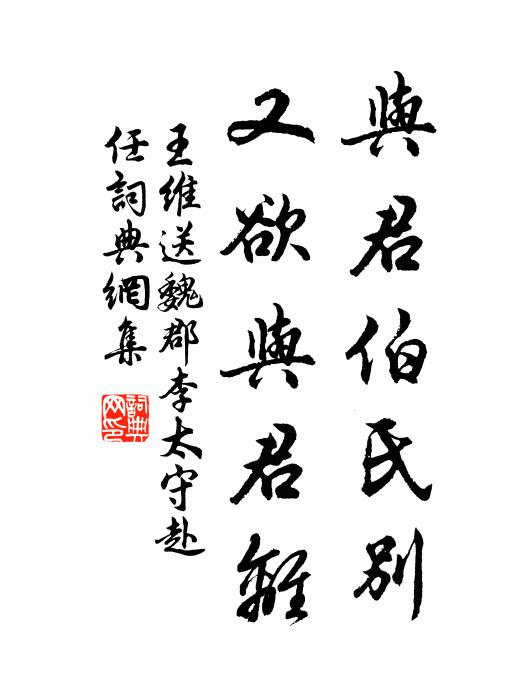 與君伯氏別
又欲與君離
王維送魏郡李太守赴
任詞典網集
詞典
网印